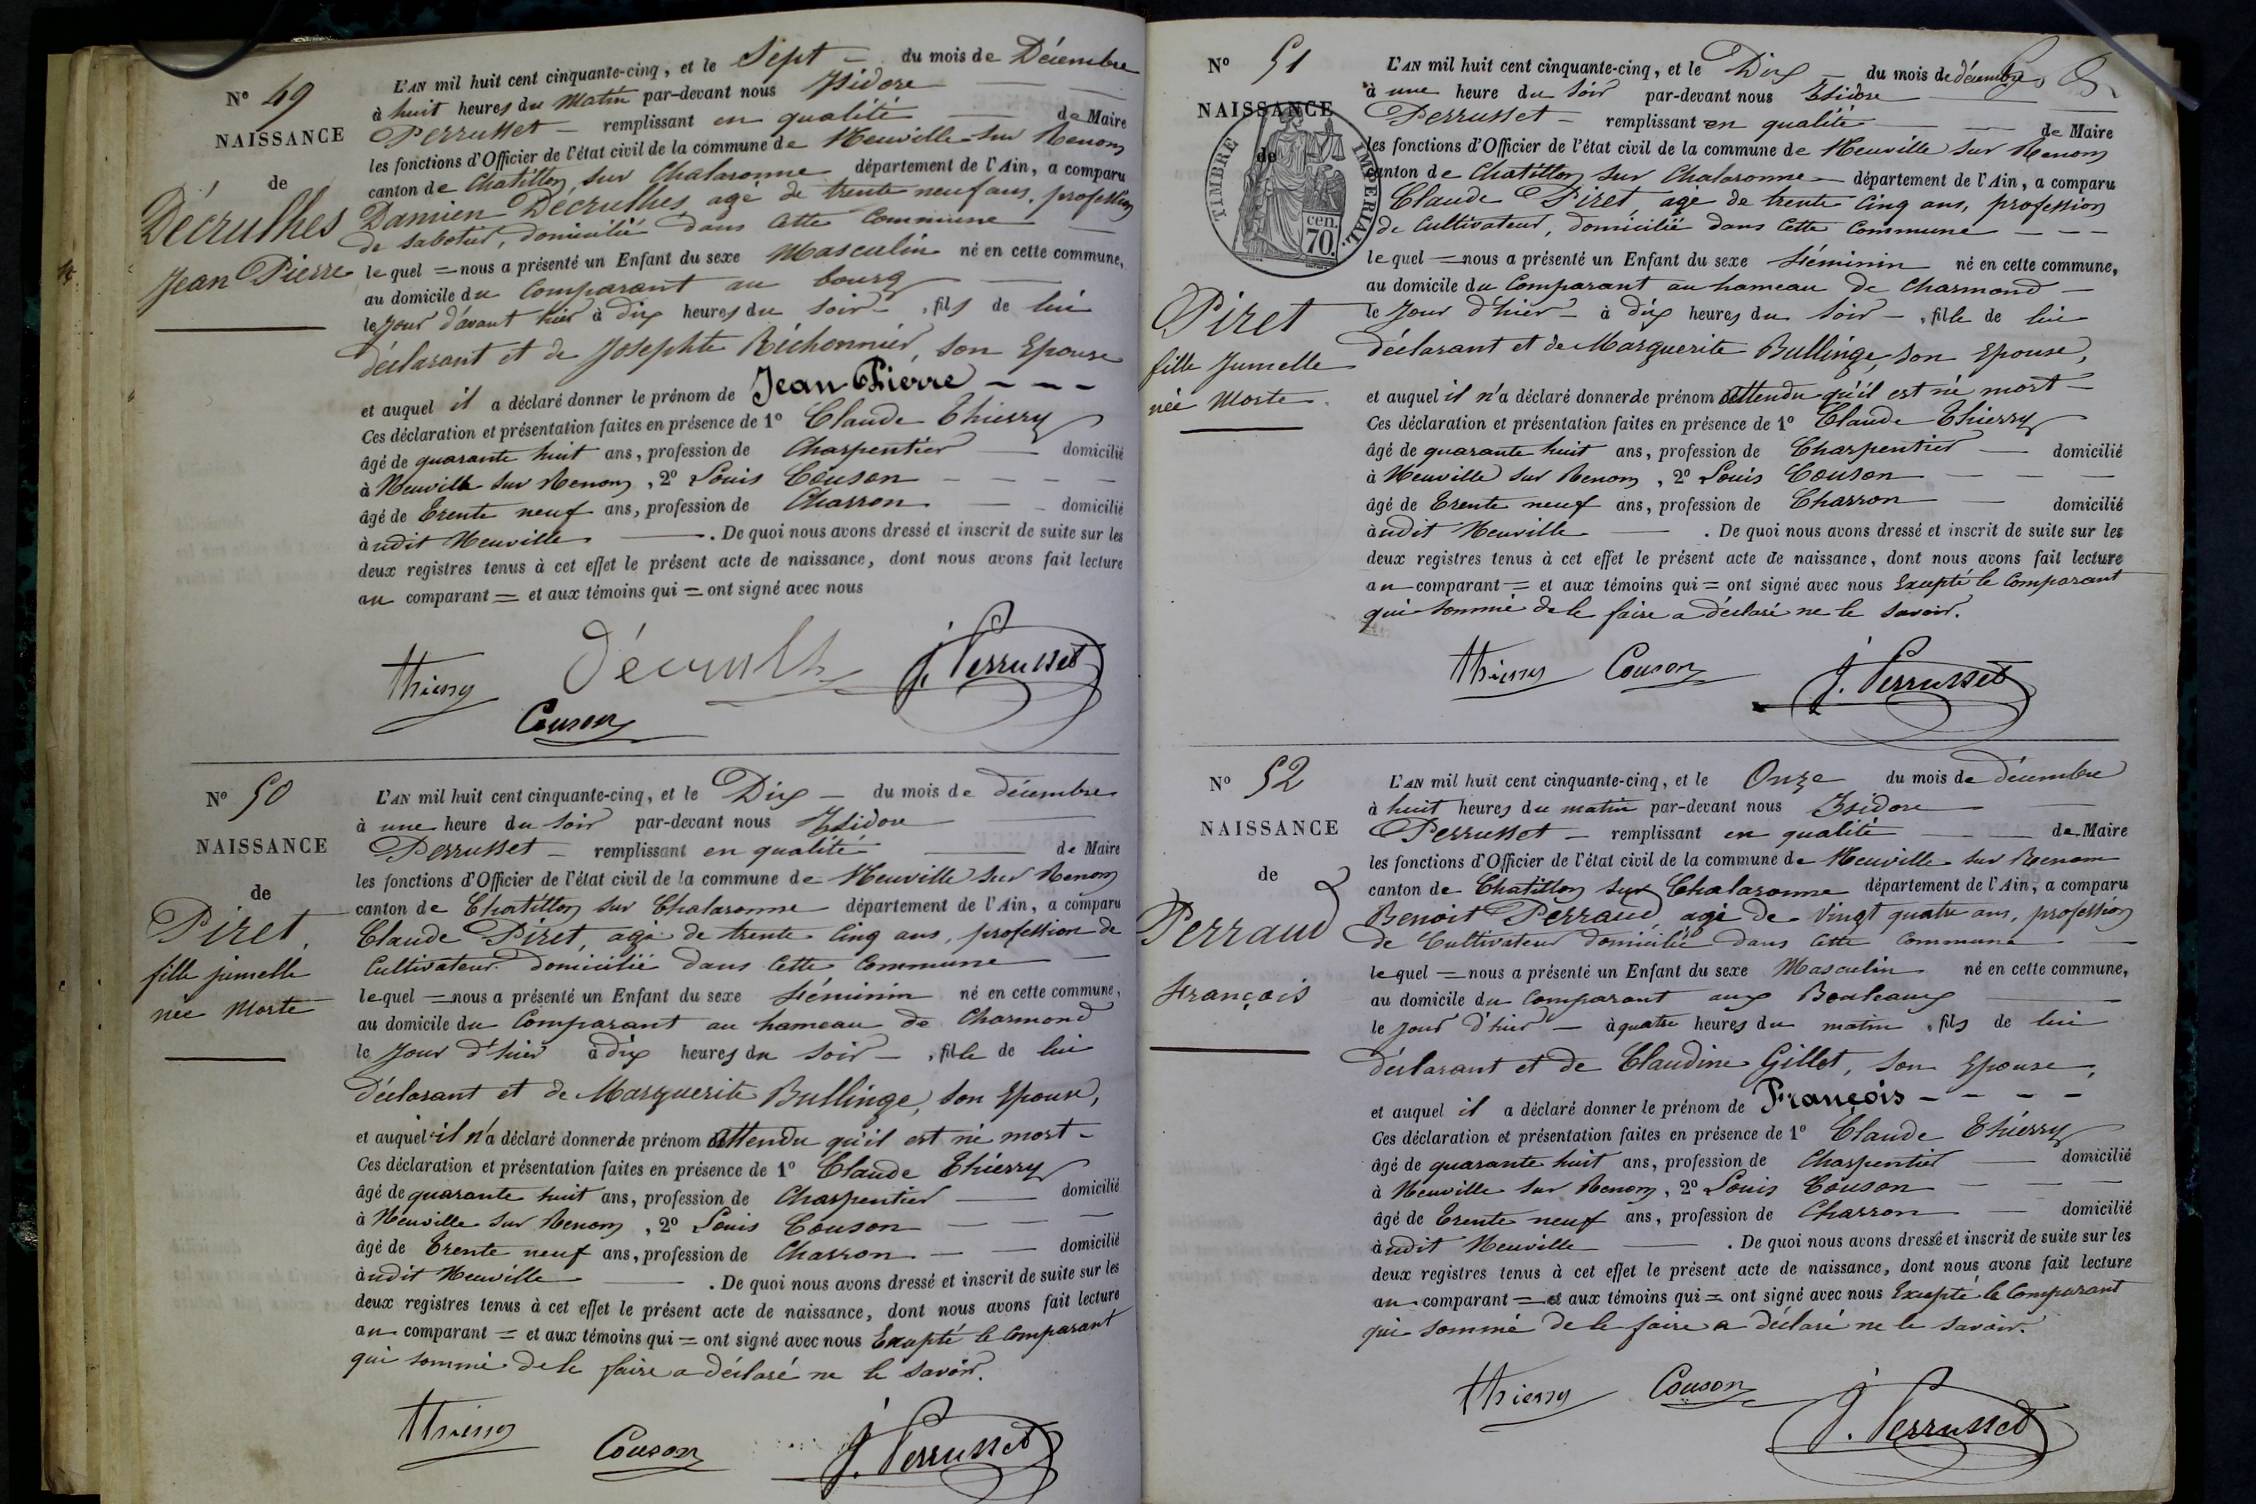 N° 49
NAISSANCE
de
Décrulhes
Jean Pierre
L'AN mil huit cent cinquante-cinq, et le Sept — du mois de Décembre
à huit heures du Matin par-devant nous Isidore
Perrusset — remplissant en qualité — de Maire
les fonctions d'Officier de l'état civil de la commune de Neuville sur Renom
canton de Chatillon sur Chalaronne département de l'Ain, a comparu
Damien Décrulhes, agé de trente neuf ans, profession
de sabotier, domicilié dans cette Commune —
lequel = nous a présenté un Enfant du sexe Masculin né en cette commune,
au domicile du Comparant au bourg —
le jour d'avant hier à dix heures du soir —, fils de lui
déclarant et de Josephte Réchonnier, son Epouse
et auquel il a déclaré donner le prénom de Jean Pierre - - -
Ces déclaration et présentation faites en présence de 1° Claude Thierry
âgé de quarante huit ans, profession de Charpentier — domicilié
à Neuville sur Renom, 2° Louis Couson - - - -
âgé de Trente neuf ans, profession de Charron — domicilié
àudit Neuville —. De quoi nous avons dressé et inscrit de suite sur les
deux registres tenus à cet effet le présent acte de naissance, dont nous avons fait lecture
au comparant = et aux témoins qui = ont signé avec nous
thierry Décrulh J. Perrusset
Couson
N° 50
NAISSANCE
de
Piret,
fille jumelle
née Morte
L'AN mil huit cent cinquante-cinq, et le Dix — du mois de décembre
à une heure du soir par-devant nous Isidore —
Perrusset — remplissant en qualité — de Maire
les fonctions d'Officier de l'état civil de la commune de Neuville sur Renom
canton de Chatillon sur Chalaronne département de l'Ain, a comparu
Claude Piret, agé de trente cinq ans, profession de
Cultivateur domicilié dans cette Commune —
lequel = nous a présenté un Enfant du sexe féminin né en cette commune,
au domicile du Comparant au hameau de Charmond
le jour d'hier à dix heures du soir —, fille de lui
déclarant et de Marguerite Bullinge, son Epouse,
et auquel il n'a déclaré donner de prénom attendu qu'il est né mort -
Ces déclaration et présentation faites en présence de 1° Claude Thierry
âgé de quarante huit ans, profession de Charpentier — domicilié
à Neuville sur Renom, 2° Louis Couson — — —
âgé de Trente neuf ans, profession de Charron — — domicilié
àudit Neuville —. De quoi nous avons dressé et inscrit de suite sur les
deux registres tenus à cet effet le présent acte de naissance, dont nous avons fait lecture
au comparant = et aux témoins qui = ont signé avec nous Excepté le Comparant
qui sommé de le faire a déclaré ne le savoir.
thierry Couson J. Perrusset
N° 51
NAISSANCE
de
TIMBRE IMPERIAL.
cen.
70.
Piret
fille Jumelle
née Morte
L'AN mil huit cent cinquante-cinq, et le Dix — du mois de décembre
à une heure du soir par-devant nous Isidore
Perrusset — remplissant en qualité — de Maire
les fonctions d'Officier de l'état civil de la commune de Neuville sur Renom
canton de Chatillon sur Chalaronne — département de l'Ain, a comparu
Claude Piret agé de trente cinq ans, profession
de Cultivateur, domicilié dans cette Commune - - -
lequel = nous a présenté un Enfant du sexe féminin né en cette commune,
au domicile du Comparant au hameau de Charmond —
le jour d'hier — à dix heures du soir —, fille de lui
déclarant et de Marguerite Bullinge, son Epouse,
et auquel il n'a déclaré donner de prénom attendu qu'il est né mort -
Ces déclaration et présentation faites en présence de 1° Claude Thierry
âgé de quarante huit ans, profession de Charpentier — domicilié
à Neuville sur Renom, 2° Louis Couson — — —
âgé de Trente neuf ans, profession de Charron — domicilié
àudit Neuville —. De quoi nous avons dressé et inscrit de suite sur les
deux registres tenus à cet effet le présent acte de naissance, dont nous avons fait lecture
au comparant = et aux témoins qui = ont signé avec nous Excepté le Comparant
qui sommé de le faire a déclaré ne le savoir.
thierry Couson J. Perrusset
N° 52
NAISSANCE
de
Perraud
François
L'AN mil huit cent cinquante-cinq, et le Onze du mois de décembre
à huit heures du matin par-devant nous Isidore —
Perrusset — remplissant en qualité — de Maire
les fonctions d'Officier de l'état civil de la commune de Neuville sur Renom
canton de Chatillon sur Chalaronne département de l'Ain, a comparu
Benoit Perraud, agé de Vingt quatre ans, profession
de Cultivateur domicilié dans cette Commune —
lequel = nous a présenté un Enfant du sexe Masculin né en cette commune,
au domicile du Comparant aux Bouleaux —
le jour d'hier — à quatre heures du matin, fils de lui
déclarant et de Claudine Gillet, son Epouse,
et auquel il a déclaré donner le prénom de François - - - -
Ces déclaration et présentation faites en présence de 1° Claude Thierry
âgé de quarante huit ans, profession de Charpentier — domicilié
à Neuville sur Renom, 2° Louis Couson — — —
âgé de Trente neuf ans, profession de Charron — domicilié
àudit Neuville —. De quoi nous avons dressé et inscrit de suite sur les
deux registres tenus à cet effet le présent acte de naissance, dont nous avons fait lecture
au comparant = et aux témoins qui = ont signé avec nous Excepté le Comparant
qui sommé de le faire a déclaré ne le savoir.
thierry Couson J. Perrusset